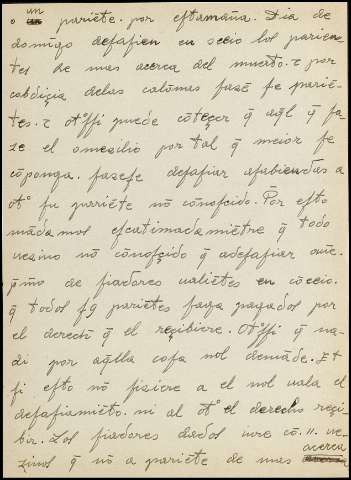 un
o pariẽte. por eſta maña. Dia de
domĩgo deſaſien en ɔceio los pariẽ-
tes de mas acerca del muerto. τ por
cobdiçia delas calonias faze ſe pariẽ-
tes. τ otoſſi puede cõteçer q̃ aql̃ q̃ fa-
ze el omezilio por tal q̃ meior ſe
cõponga. faze ſe deſafiar a ſabiendas a
oto ſu pariẽte nõ conoſcido. Por eſto
mãda mos eſcatimada miẽtre q̃ todo
uezino nõ conoſçido q̃ a deſafiar ouie.
de fiadores ualiẽtes en cõceio.
q̃ todos ſ9 pariẽtes faga pagados por
el derecħ q̃ el reçibiere. Otoſſi q̃ na-
di por aq̃lla coſa nol demãde. Et
ſi eſto nõ fiziere a el nol uala el
deſafiamiẽto. ni al oto el derecho reçi-
bir. Los fiadores dados iure cõ .II. ue-
acerca
zinos q̃ nõ a pariẽte de mas